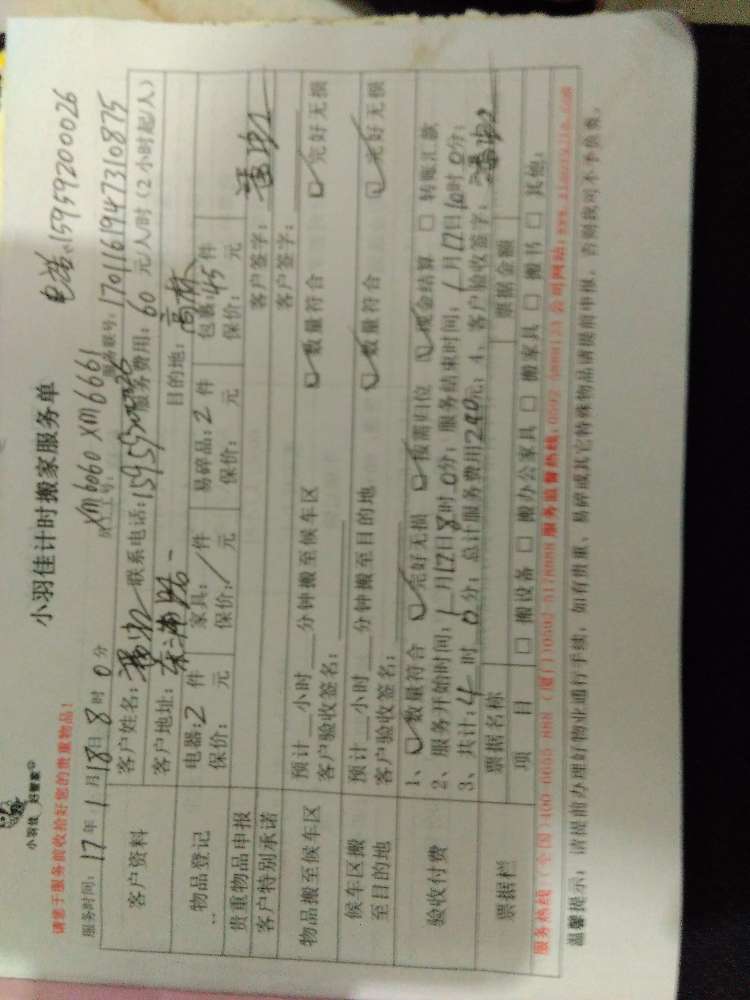 小羽佳 好管家
小羽佳计时搬家服务单
电话:15959200026
请您于服务前收拾好您的贵重物品!
服务时间: 17 年 1 月 18 日 8 时 0 分
XM6060 XM6661
服务账号: 1701161947310875
客户资料
客户姓名: 联系电话: 服务费用: 60 元/人/时 (2小时起/人)
客户地址: 目的地: 高林
物品登记
电器: 2 件 家具: / 件 易碎品: 2 件 包裹: 45 件
保价: 元 保价: / 元 保价: 元 保价: 元
贵重物品申报 客户签字:
客户特别承诺 客户签字:
物品搬至候车区
预计 小时 分钟搬至候车区 数量符合 完好无损
客户验收签名:
候车区搬至目的地
预计 小时 分钟搬至目的地 数量符合 完好无损
客户验收签名:
验收付费
1、 数量符合 完好无损 按需归位 现金结算 转账汇款
2、服务开始时间: 1 月 17 日 8 时 0 分; 服务结束时间: 1 月 17 日 10 时 0 分;
3、共计: 4 时 0 分; 总计服务费用 240 元; 4、客户验收签字:
票据栏
票据名称 票据金额
项 目 搬设备 搬办公家具 搬家具 搬书 其他:
服务热线 (全国)400-6655-888 (厦门)0592-5178888 服务监督热线:0592- 公司网站:
温馨提示: 请提前办理好物业通行手续, 如有贵重、易碎或其它特殊物品请提前申报, 否则我司不予负责。